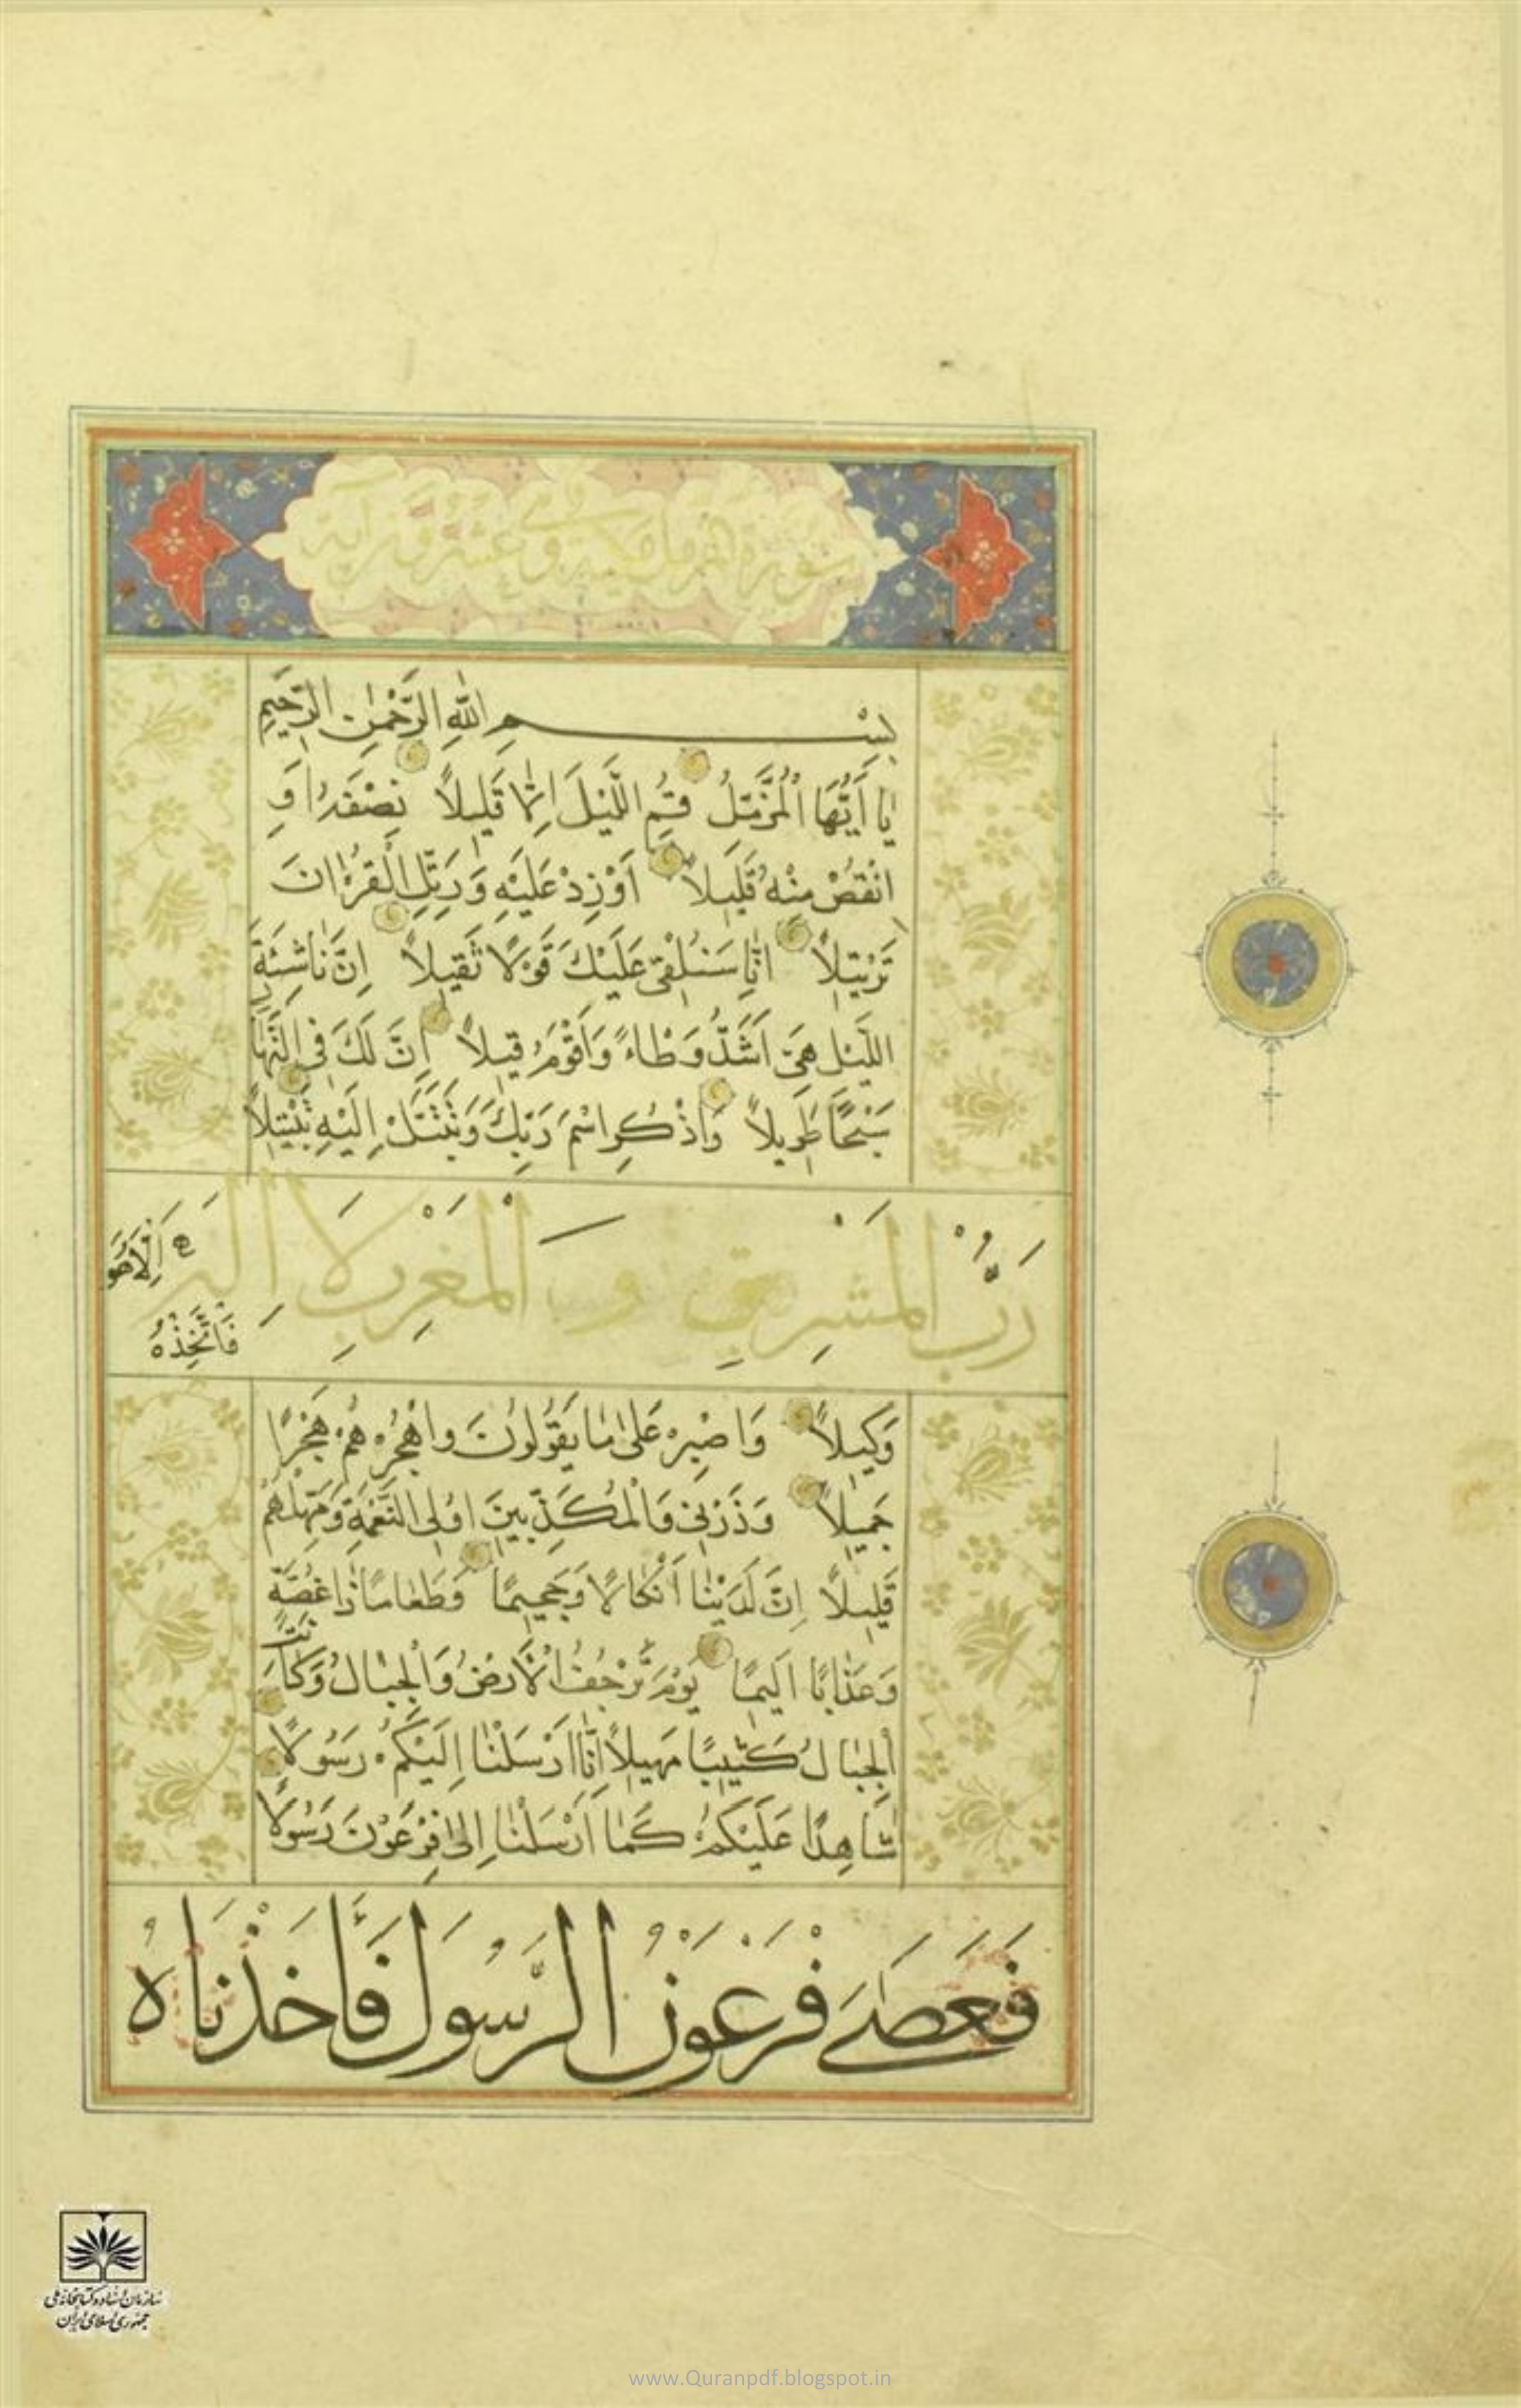 سورة المزمل مكية وهي عشرون آية
بِسْمِ اللَّهِ الرَّحْمٰنِ الرَّحِيمِ
يَا أَيُّهَا الْمُزَّمِّلُ قُمِ اللَّيْلَ إِلَّا قَلِيلًا نِصْفَهُ أَوِ
انْقُصْ مِنْهُ قَلِيلًا أَوْ زِدْ عَلَيْهِ وَرَتِّلِ الْقُرْانَ
تَرْتِيلًا إِنَّا سَنُلْقِي عَلَيْكَ قَوْلًا ثَقِيلًا إِنَّ نَاشِئَةَ
اللَّيْلِ هِيَ أَشَدُّ وَطْاءً وَأَقْوَمُ قِيلًا إِنَّ لَكَ فِي النَّهَارِ
سَبْحًا طَوِيلًا وَاذْكُرِ اسْمَ رَبِّكَ وَتَبَتَّلْ إِلَيْهِ تَبْتِيلًا
رَبُّ الْمَشْرِقِ وَالْمَغْرِبِ لَا إِلَهَ إِلَّا هُوَ
فَاتَّخِذْهُ
وَكِيلًا وَاصْبِرْ عَلَىٰ مَا يَقُولُونَ وَاهْجُرْهُمْ هَجْرًا
جَمِيلًا وَذَرْنِي وَالْمُكَذِّبِينَ أُولِي النَّعْمَةِ وَمَهِّلْهُمْ
قَلِيلًا إِنَّ لَدَيْنَا أَنْكَالًا وَجَحِيمًا وَطَعَامًا ذَا غُصَّةٍ
وَعَذَابًا أَلِيمًا يَوْمَ تَرْجُفُ الْأَرْضُ وَالْجِبَالُ وَكَانَتِ
الْجِبَالُ كَثِيبًا مَهِيلًا إِنَّا أَرْسَلْنَا إِلَيْكُمْ رَسُولًا
شَاهِدًا عَلَيْكُمْ كَمَا أَرْسَلْنَا إِلَىٰ فِرْعَوْنَ رَسُولًا
فَعَصَىٰ فِرْعَوْنُ الرَّسُولَ فَأَخَذْنَاهُ
سازمان اسناد و کتابخانه ملی
جمهوری اسلامی ایران
www.Quranpdf.blogspot.in